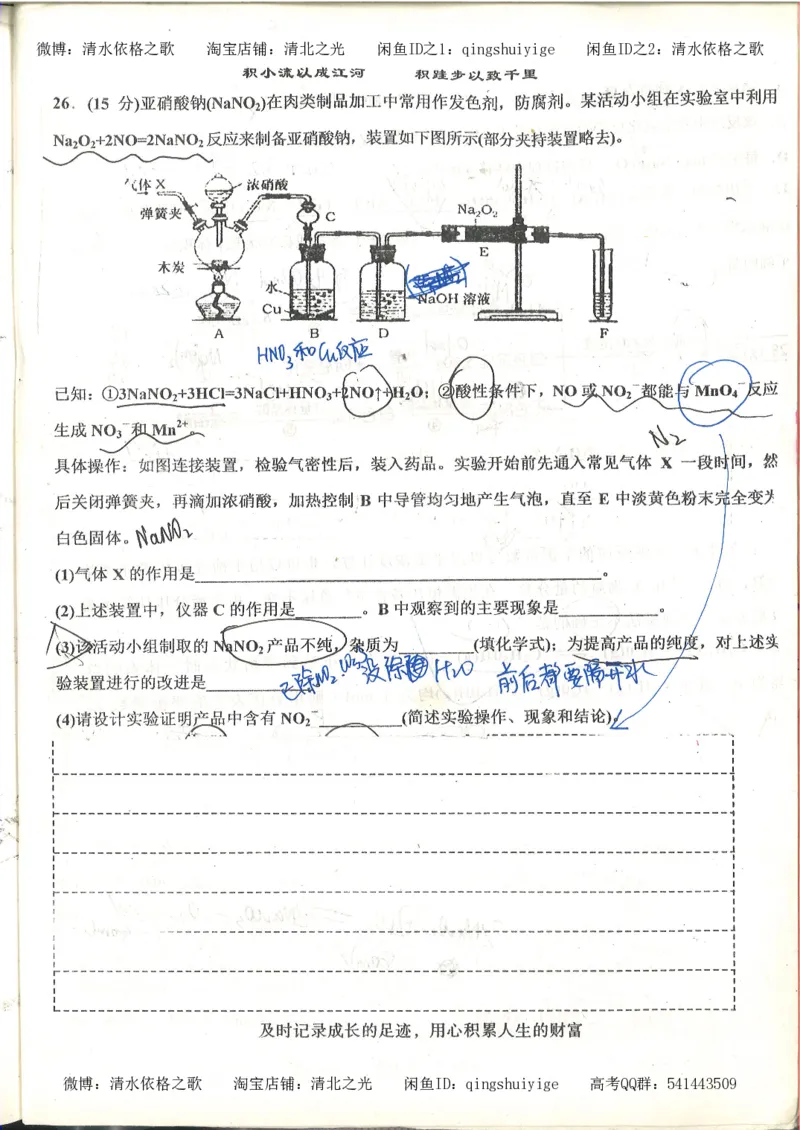 微博：清水依格之歌 淘宝店铺：清北之光 闲鱼ID之1：qingshuiyige 闲鱼ID之2：清水依格之歌
积小流以成江河 积跬步以致千里
26．(15 分)亚硝酸钠(NaNO₂)在肉类制品加工中常用作发色剂，防腐剂。某活动小组在实验室中利用
Na₂O₂+2NO=2NaNO₂ 反应来制备亚硝酸钠，装置如下图所示(部分夹持装置略去)。
气体 X
浓硝酸
弹簧夹
C
Na₂O₂
E
木炭
水
Cu
NaOH 溶液
A B D F
HNO₃和Cu反应
已知：①3NaNO₂+3HCl=3NaCl+HNO₃+2NO↑+H₂O；②酸性条件下，NO 或 NO₂⁻都能与 MnO₄⁻反应
生成 NO₃⁻和 Mn²⁺。
N₂
具体操作：如图连接装置，检验气密性后，装入药品。实验开始前先通入常见气体 X 一段时间，然
后关闭弹簧夹，再滴加浓硝酸，加热控制 B 中导管均匀地产生气泡，直至 E 中淡黄色粉末完全变为
白色固体。NaNO₂
(1)气体 X 的作用是
。
(2)上述装置中，仪器 C 的作用是 。B 中观察到的主要现象是 。
(3)该活动小组制取的 NaNO₂ 产品不纯，杂质为 (填化学式)；为提高产品的纯度，对上述实
验装置进行的改进是 没除 H₂O 前后都要隔开水
(4)请设计实验证明产品中含有 NO₂⁻ (简述实验操作、现象和结论)。
及时记录成长的足迹，用心积累人生的财富
微博：清水依格之歌 淘宝店铺：清北之光 闲鱼ID：qingshuiyige 高考QQ群：541443509